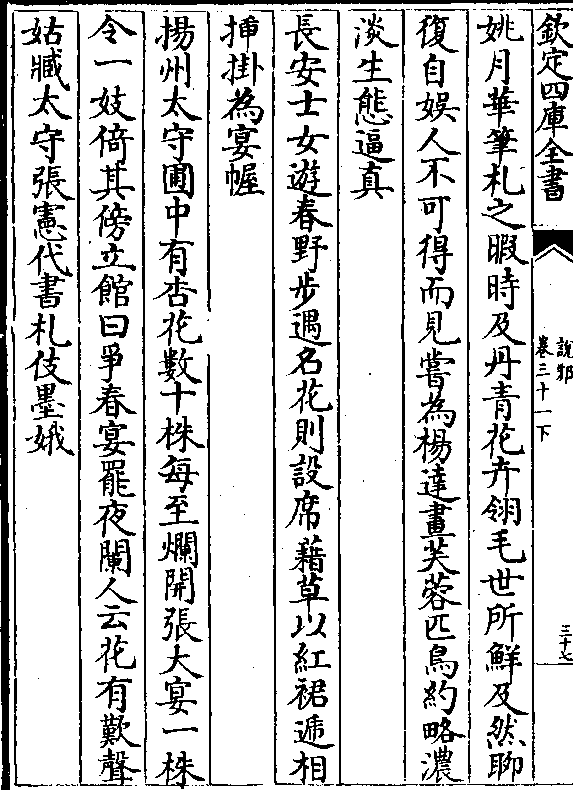 欽定四庫全書
說郛
卷三十一下
三十七
姚月華筆札之暇時及丹青花卉翎毛世所鮮及然聊
復自娛人不可得而見嘗為楊達畫芙蓉匹鳥約略濃
淡生態逼真
長安士女遊春野步遇名花則設席藉草以紅裙遞相
挿掛為宴幄
揚州太守圃中有杏花數十株每至爛開張大宴一株
令一妓倚其傍立館曰爭春宴罷夜闌人云花有歎聲
姑臧太守張憲代書札伎墨娥